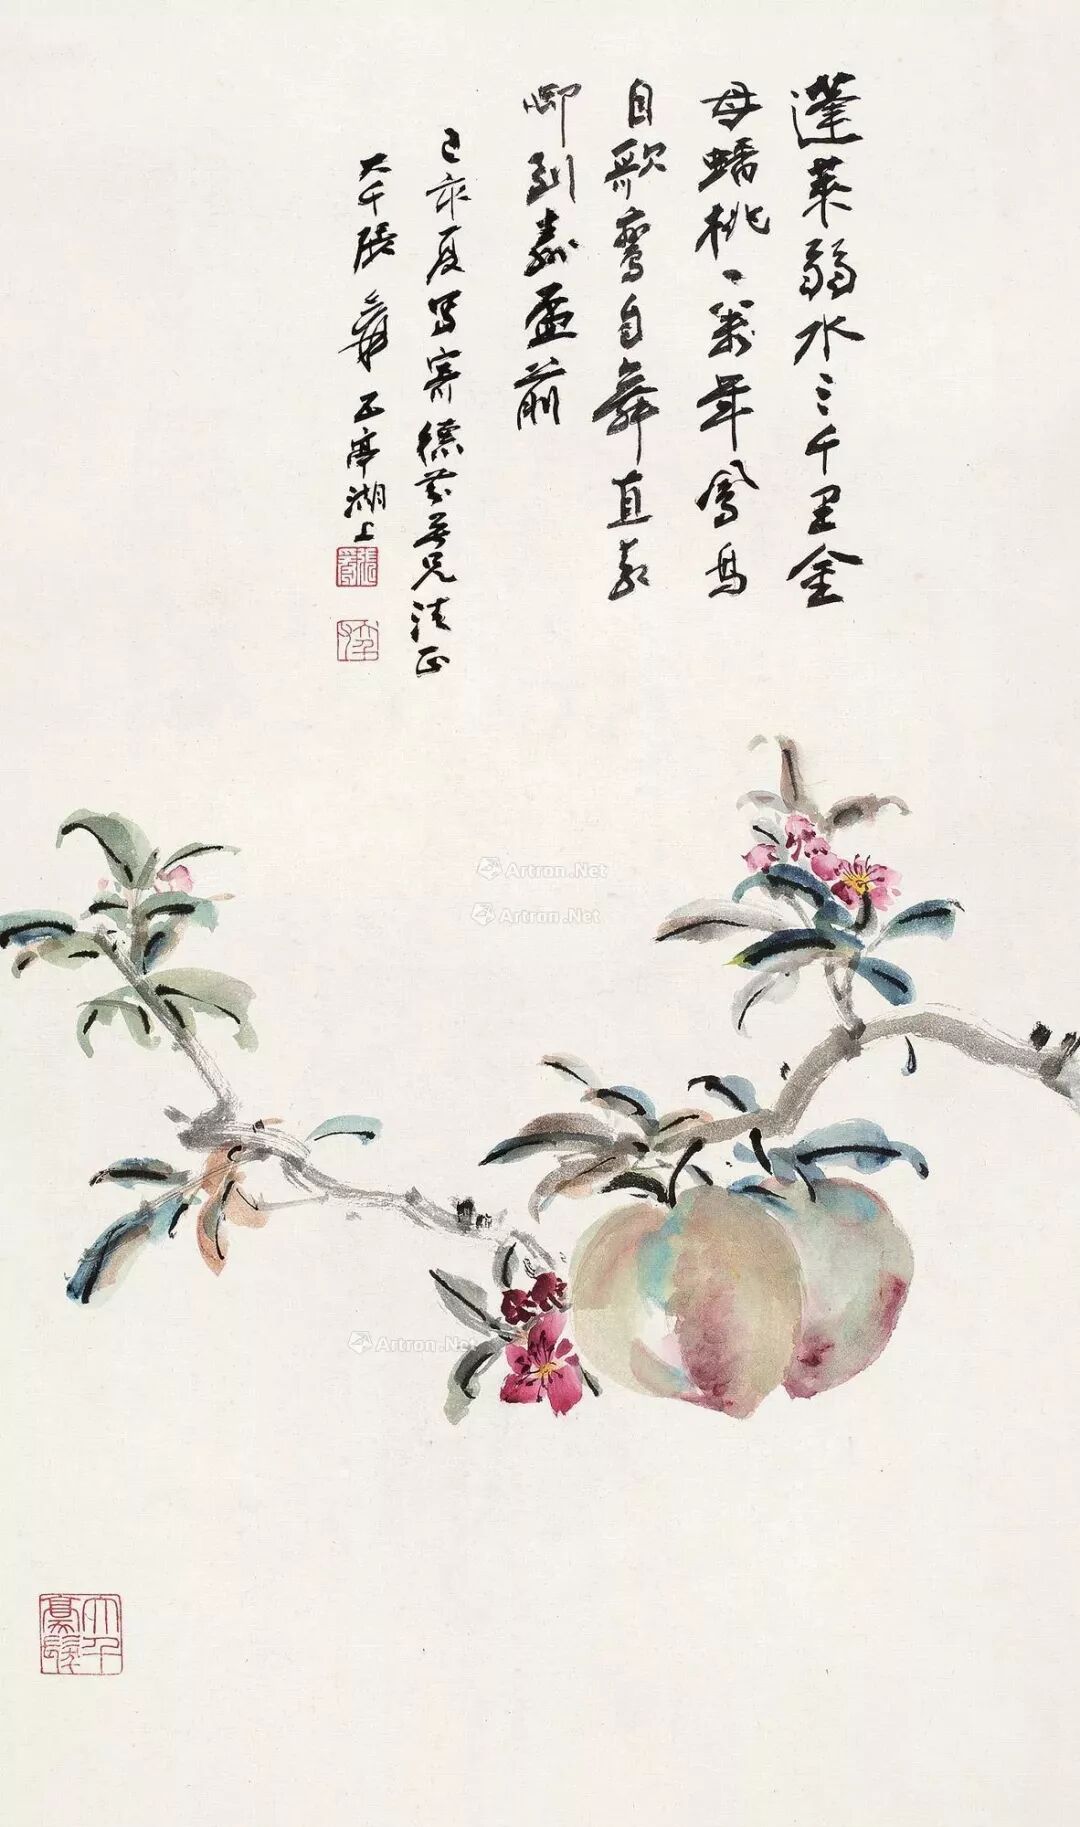 蓬莱弱水三千里金
母蟠桃一万年鳳鳥
自歌鸞自舞直教
啣到壽盃前
己亥夏寫寄德芬吾兄法正
大千張爰 五亭湖上
張爰
大千
大千豪髮
Artron.Net
Artron.Net
Artron.Net